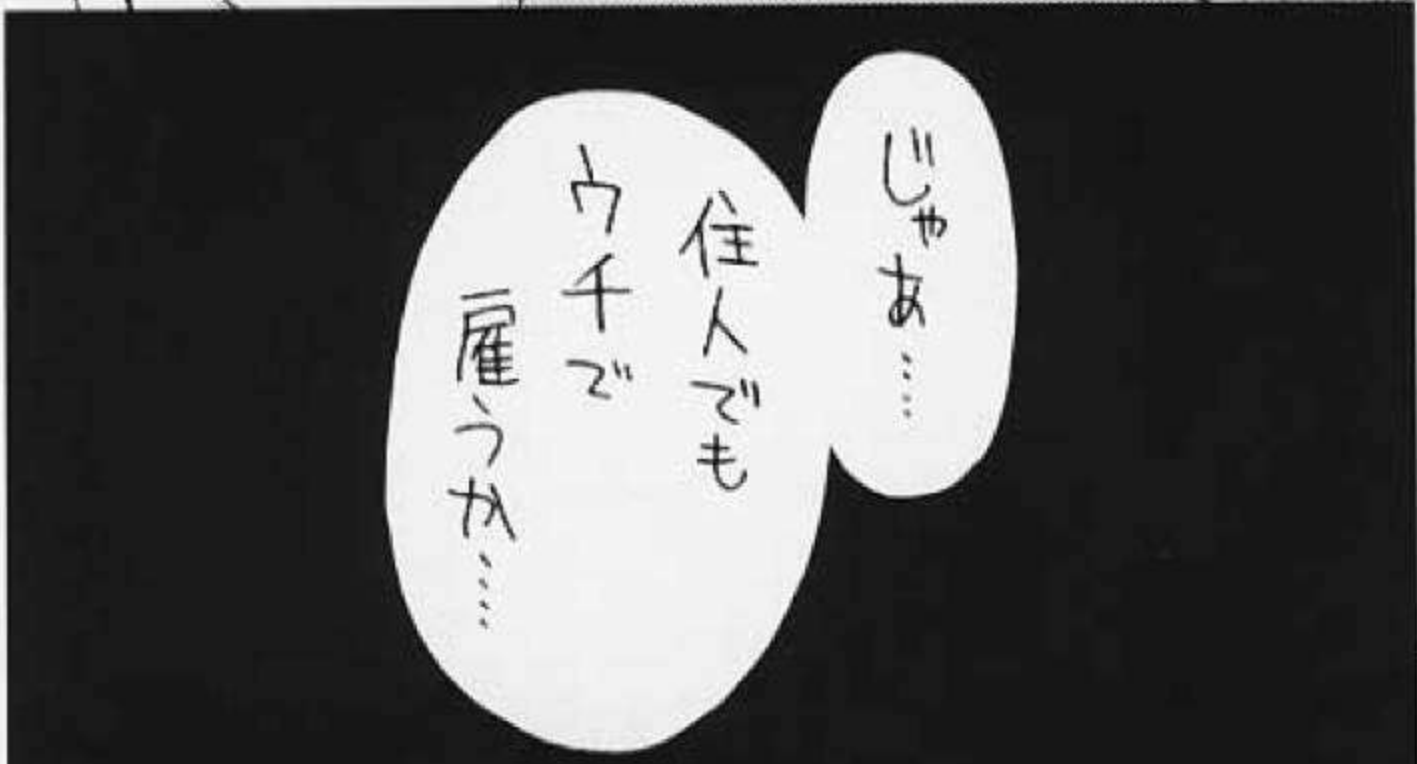 じゃあ‥‥
住人でも
ウチで
雇うか‥‥